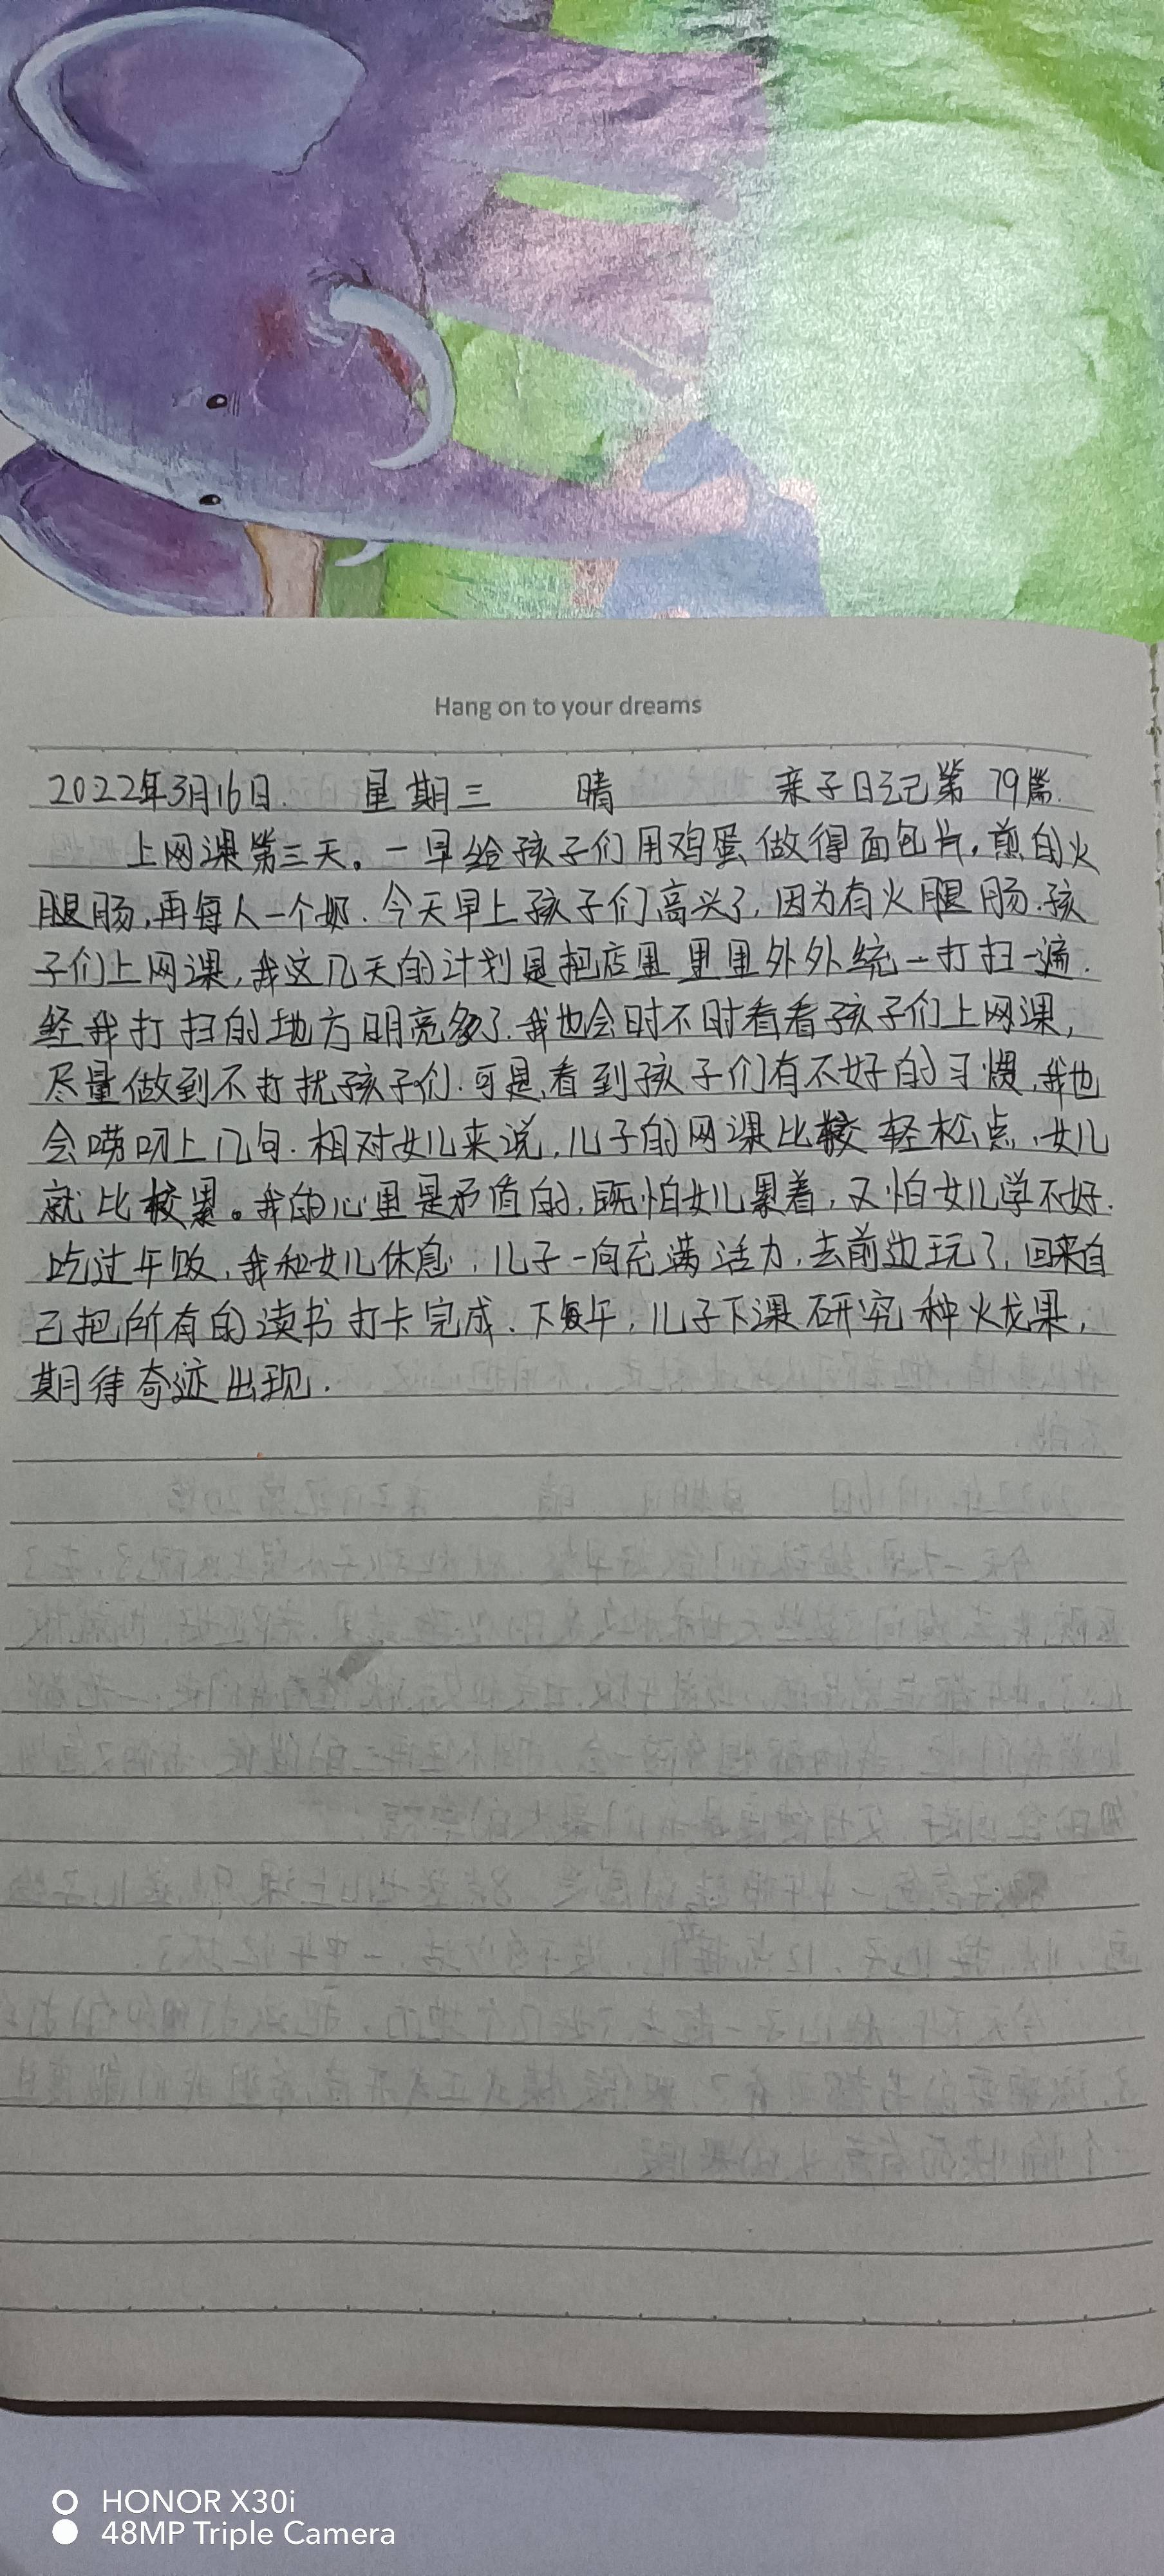 Hang on to your dreams
2022年3月16日. 星期三 晴 亲子日记第79篇.
上网课第三天。一早给孩子们用鸡蛋做得面包片,煎的火
腿肠,再每人一个奶.今天早上孩子们高兴了,因为有火腿肠.孩
子们上网课,我这几天的计划是把店里里里外外统一打扫一遍.
经我打扫的地方明亮多了.我也会时不时看看孩子们上网课,
尽量做到不打扰孩子们.可是,看到孩子们有不好的习惯,我也
会唠叨上几句.相对女儿来说,儿子的网课比较轻松点,女儿
就比较累。我的心里是矛盾的,既怕女儿累着,又怕女儿学不好.
吃过午饭,我和女儿休息,儿子一向充满活力,去前边玩了,回来自
己把所有的读书打卡完成.下午,儿子下课研究种火龙果,
期待奇迹出现.
HONOR X30i
48MP Triple Camera